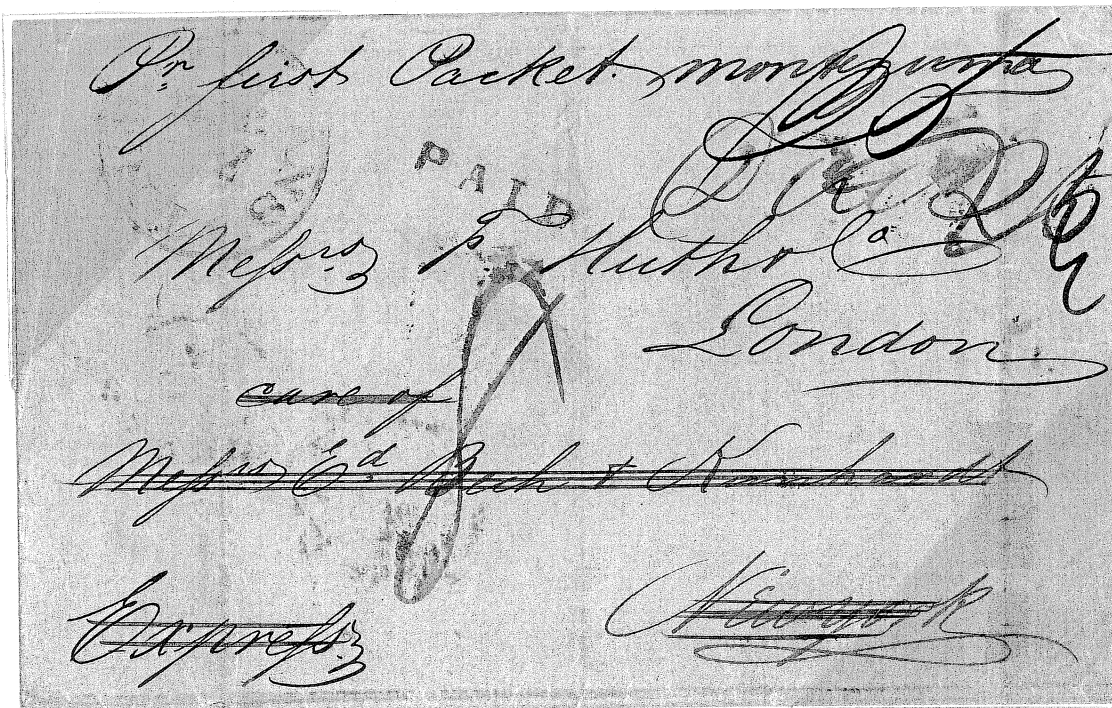 Pr. first Packet. montezuma
PAID
Messrs F. Huth & Co
London
care of
Messrs Ed. Bech & Kunhardt
Express
New york